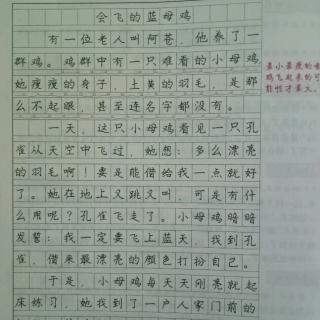 会飞的蓝母鸡
有一位老人叫阿苍，他养了一
群鸡。鸡群中有一只难看的小母鸡
她瘦瘦的身子，土黄的羽毛，是那
么不起眼，甚至连名字都没有。
一天，这只小母鸡看见一只孔
雀从天空中飞过，她想：多么漂亮
的羽毛啊！要是能借给我一点就好
了。她在地上又跳又叫，可是有什
么用呢？孔雀飞走了。小母鸡暗暗
发誓：我一定要飞上蓝天，找到孔
雀，借来最漂亮的颜色打扮自己。
于是，小母鸡每天天刚亮就起
床练习，她找到了一户人家门前的
最小最瘦的
鸡飞起来的可
能性才最大。